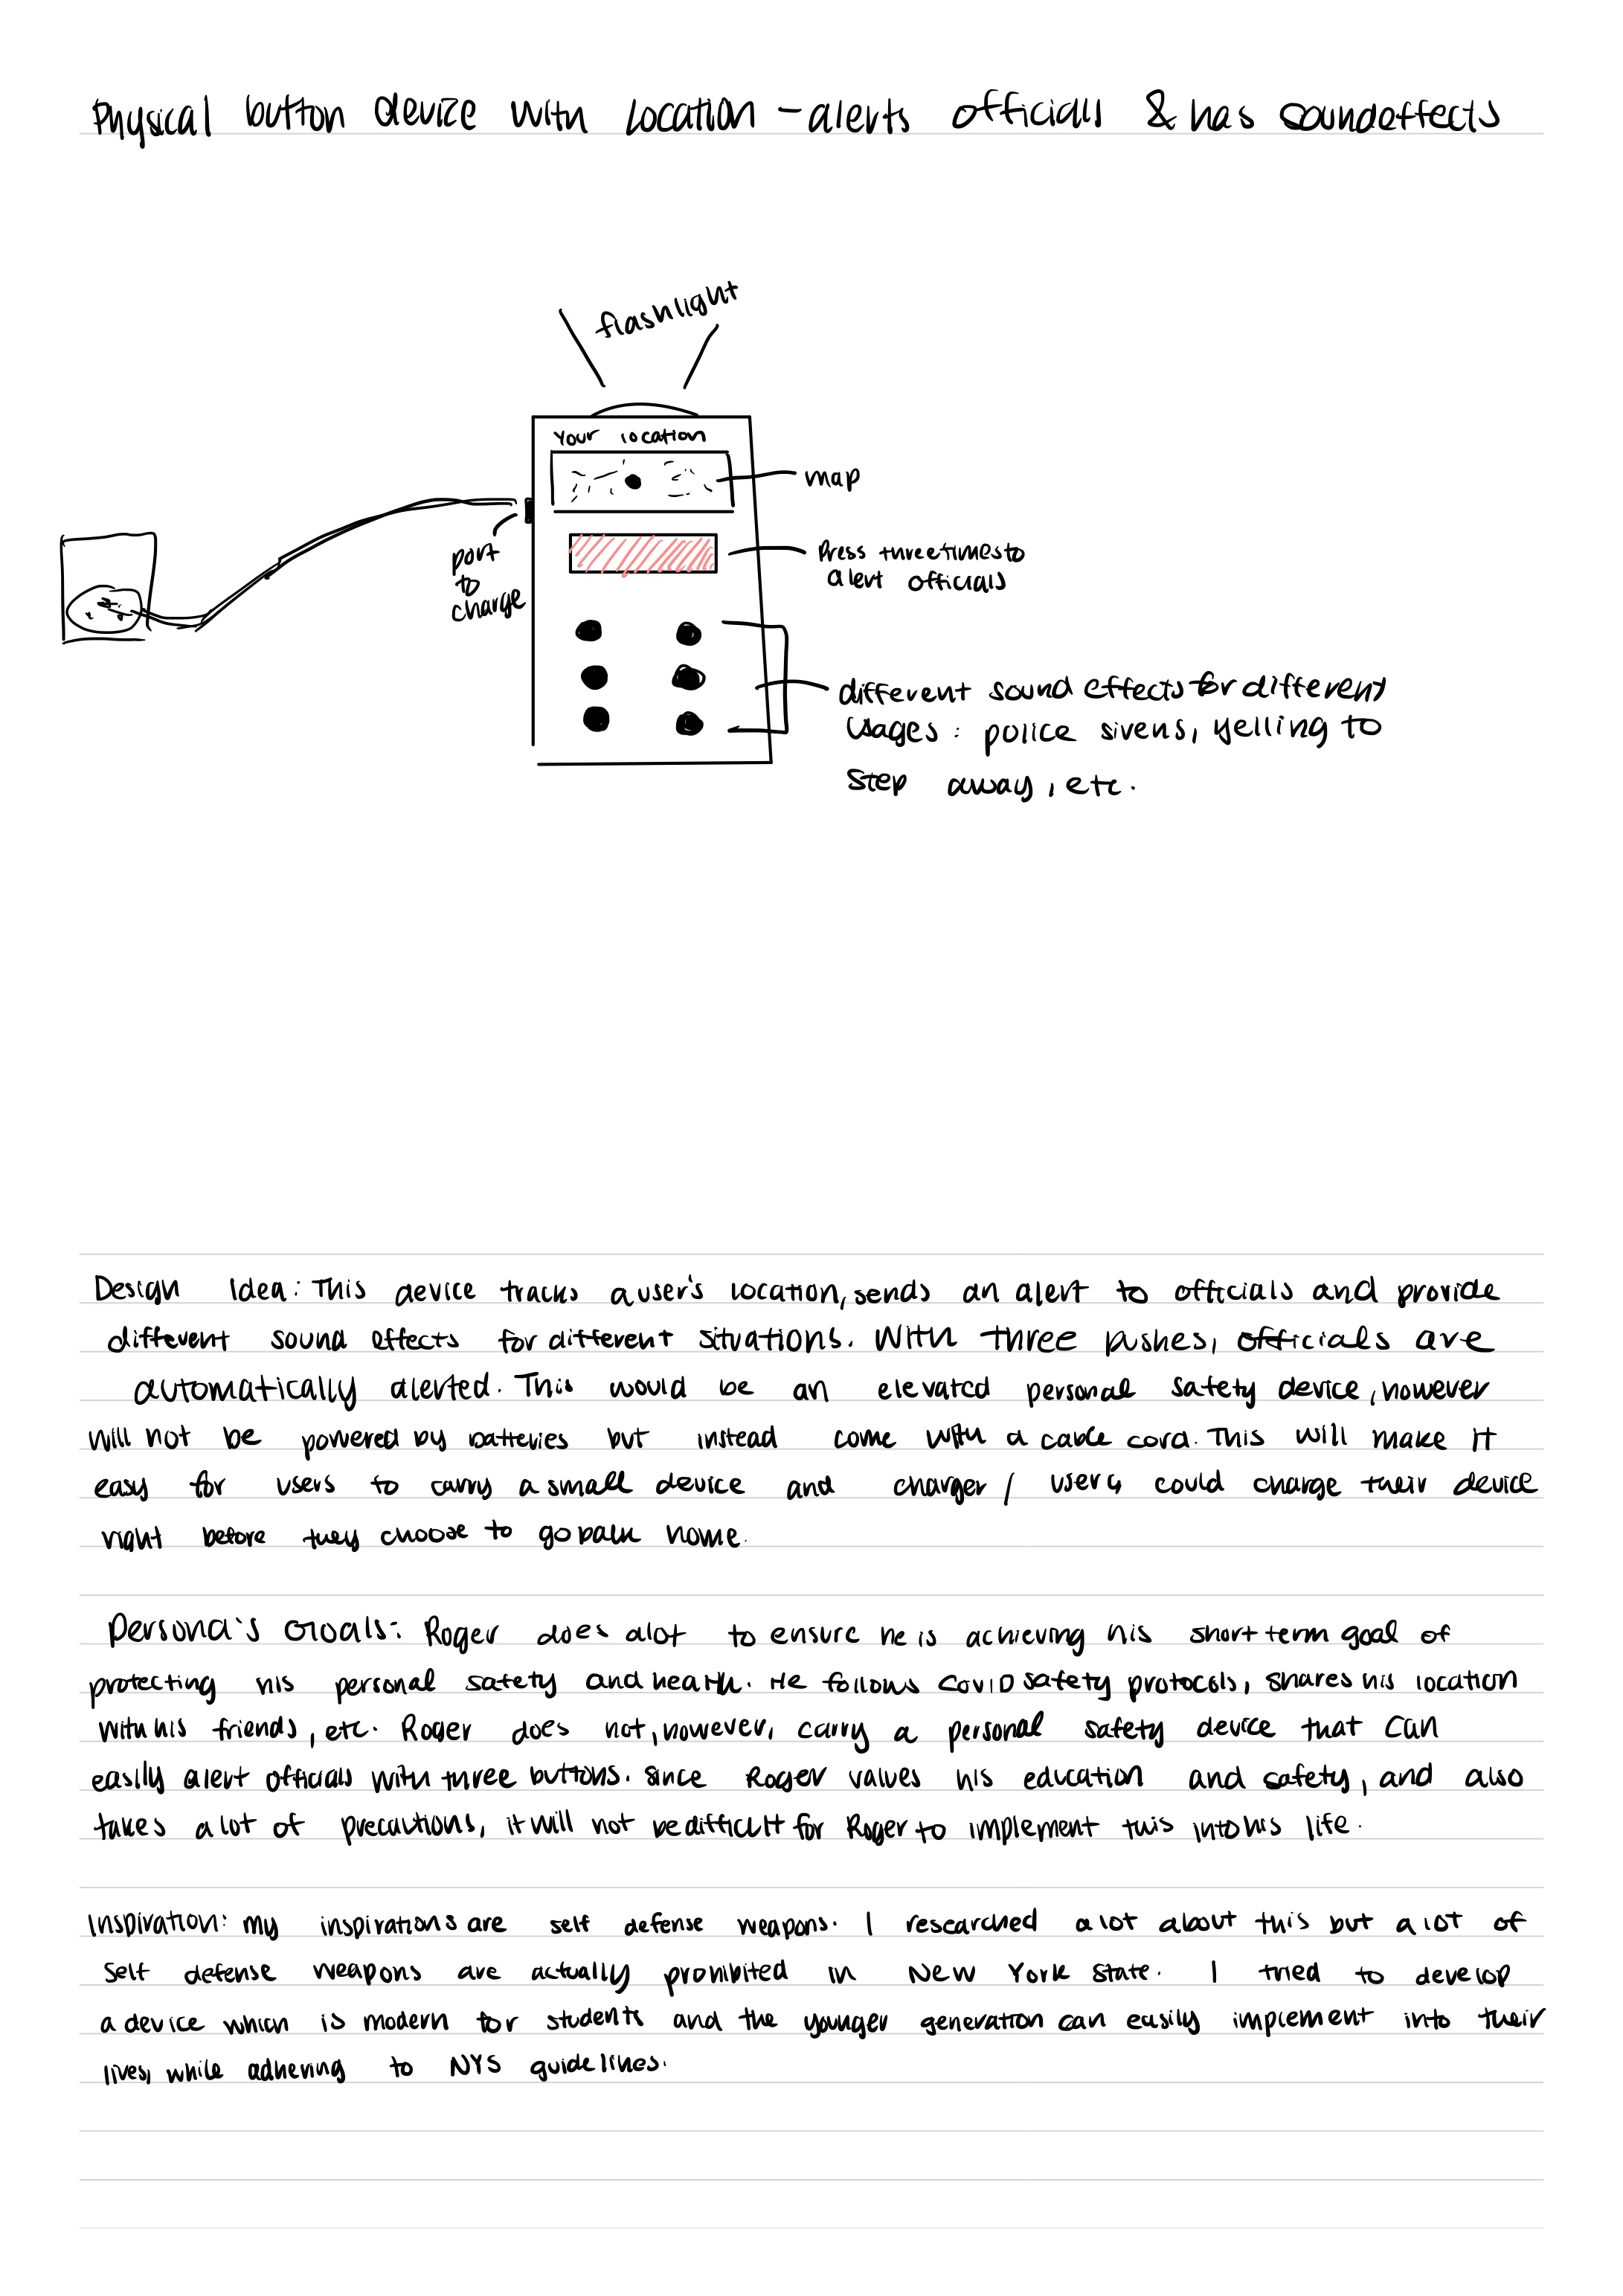 Physical button device with location - alerts officials & has soundeffects
flashlight
Your location
map
port
to
charge
Press three times to
alert officials
different sound effects for different
usages: police sirens, yelling to
step away, etc.
Design Idea: This device tracks a user's location, sends an alert to officials and provide
different sound effects for different situations. With three pushes, officials are
automatically alerted. This would be an elevated personal safety device, however
will not be powered by batteries but instead come with a cable cord. This will make it
easy for users to carry a small device and charger / users could charge their device
right before they choose to go back home.
Persona's Goals: Roger does alot to ensure he is achieving his short term goal of
protecting his personal safety and health. He follows Covid safety protocols, shares his location
with his friends, etc. Roger does not, however, carry a personal safety device that can
easily alert officials with three buttons. Since Roger values his education and safety, and also
takes a lot of precautions, it will not be difficult for Roger to implement this into his life.
Inspiration: my inspirations are self defense weapons. I researched a lot about this but a lot of
self defense weapons are actually prohibited in New York State. I tried to develop
a device which is modern for students and the younger generation can easily implement into their
lives, while adhering to NYS guidelines.